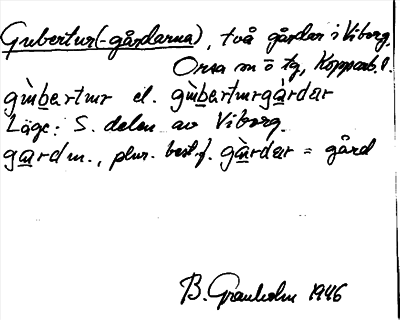 Gubertur(-gårdarna), två gårdar i Viborg,
Orsa sn o tg, Kopparb. l.
gùbertur el. gùberturgàrdar
Läge: S. delen av Viborg.
gard m., plur. best. f. gàrdar = gård
B. Granholm 1946